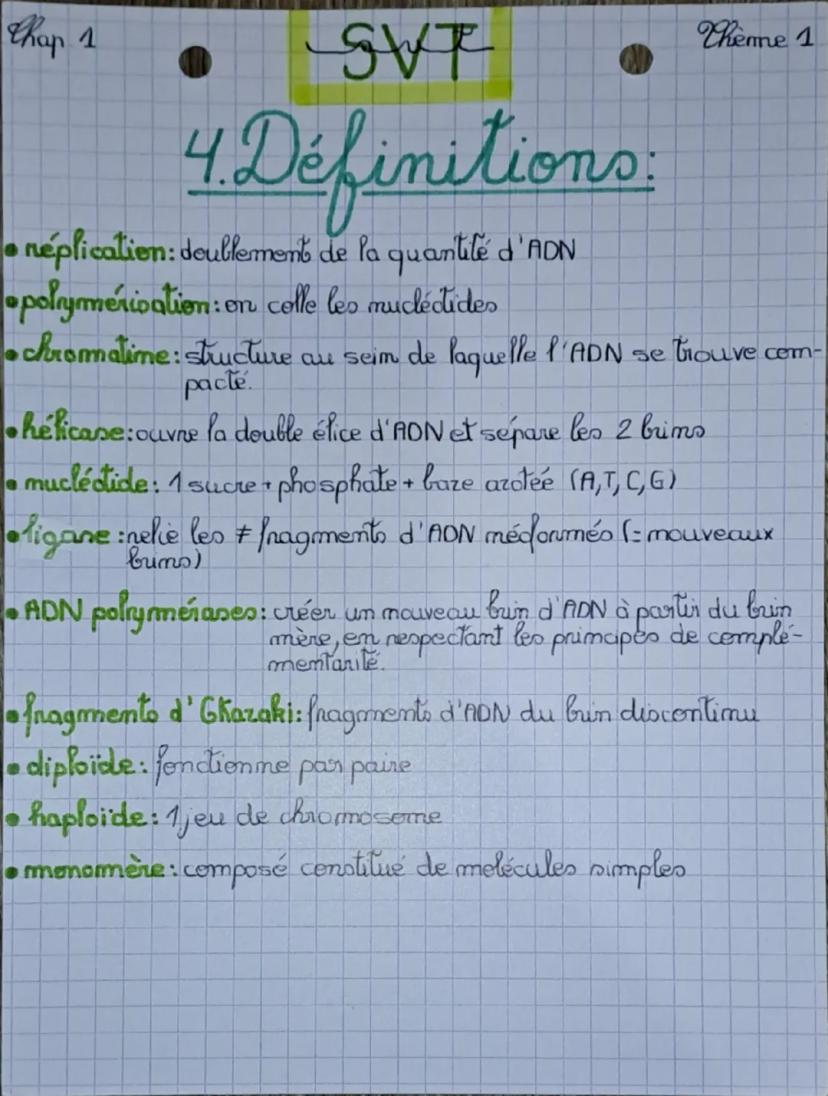 Chap 1
SVT
Thème 1
4. Définitions:
• réplication: doublement de la quantité d'ADN
• polymérisation: on colle les nucléotides
• chromatine: structure au sein de laquelle l'ADN se trouve com-
pacté.
• hélicase: ouvre la double élice d'ADN et sépare les 2 brins
• nucléotide: 1 sucre + phosphate + baze azotée (A,T,C,G)
• ligase: relie les ≠ fragments d'ADN néoformés (= nouveaux
brins)
• ADN polymérases: créer un nouveau brin d'ADN à partir du brin
mère, en respectant les principes de complé-
mentarité.
• fragments d'Okazaki: fragments d'ADN du brin discontinu
• diploïde: fonctionne par paire
• haploïde: 1 jeu de chromosome
• monomère: composé constitué de molécules simples